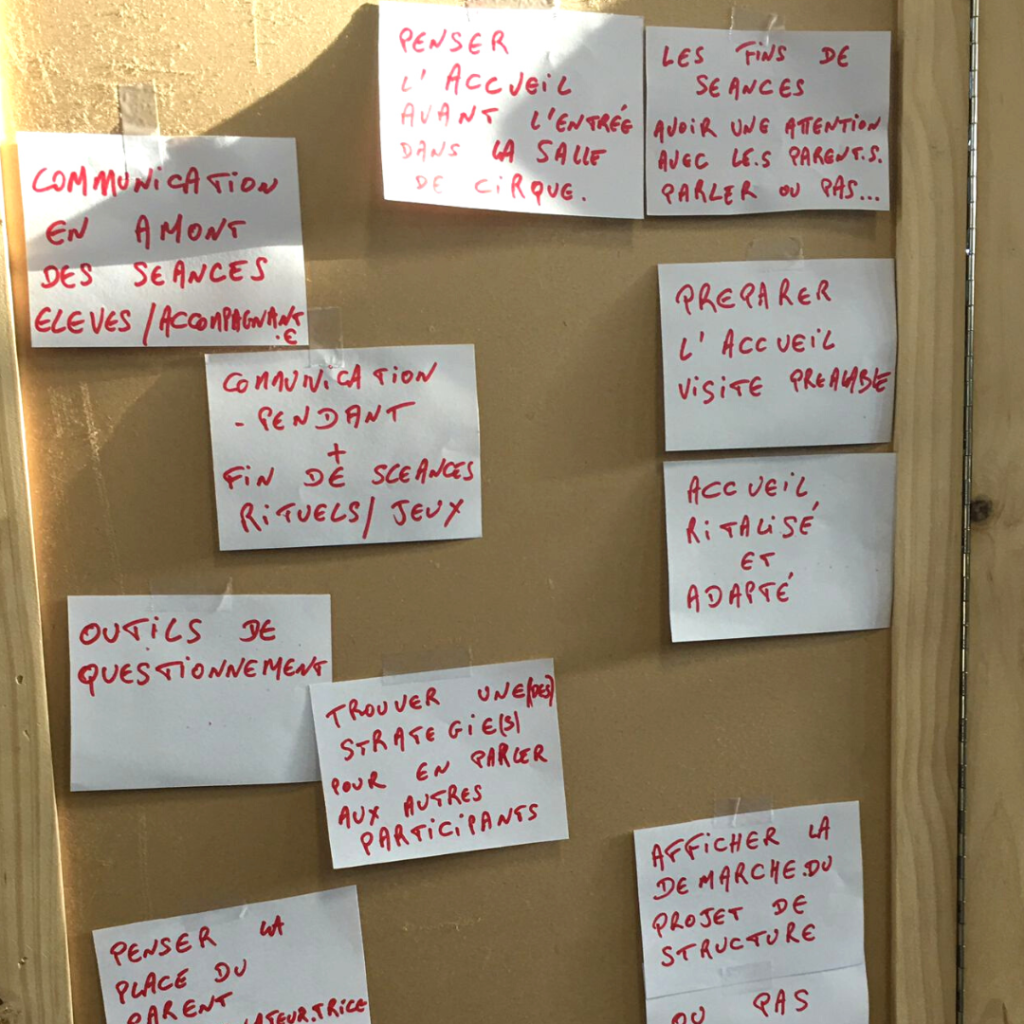 PENSER
L'ACCUEIL
AVANT L'ENTRÉE
DANS LA SALLE
DE CIRQUE.
LES FINS DE
SEANCES
AVOIR UNE ATTENTION
AVEC LE.S PARENT.S.
PARLER OU PAS...
COMMUNICATION
EN AMONT
DES SEANCES
ELEVES/ACCOMPAGNANT
.E
PREPARER
L'ACCUEIL
VISITE PREALABLE
COMMUNICATION
- PENDANT
+
FIN DE SCEANCES
RITUELS/JEUX
ACCUEIL
RITALISÉ
ET
ADAPTÉ
OUTILS DE
QUESTIONNEMENT
TROUVER UNE(DES)
STRATEGIE(S)
POUR EN PARLER
AUX AUTRES
PARTICIPANTS
AFFICHER LA
DEMARCHE.DU
PROJET DE
STRUCTURE
OU PAS
PENSER LA
PLACE DU
PARENT